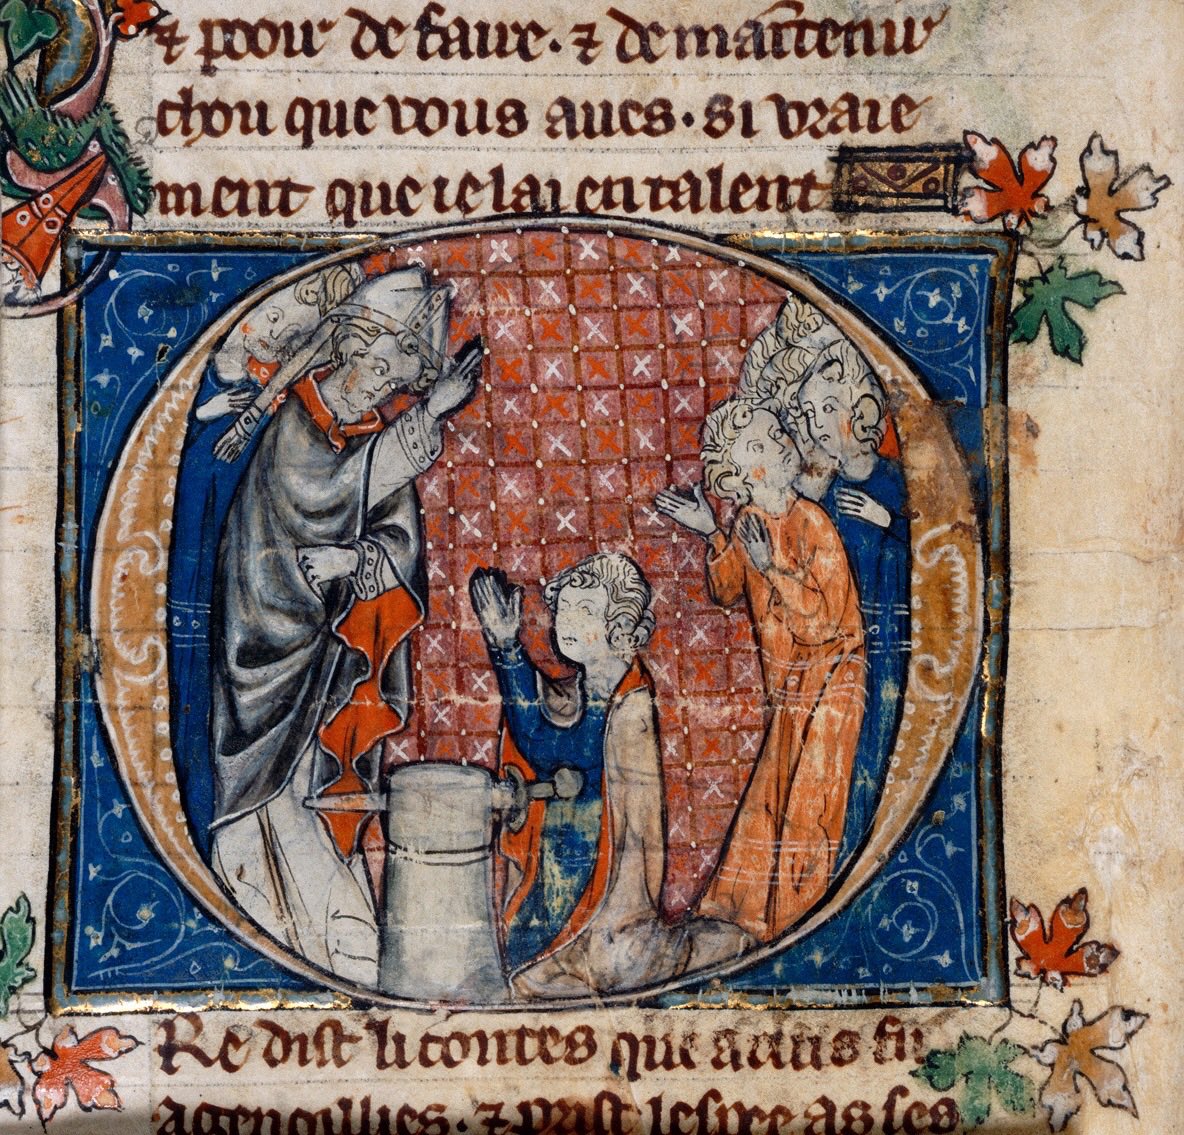 ⁊ pooir de faire. ⁊ de maintenir
chou que vous aues. si vraie
ment que ie lai en talent
Re dist li contes que artus fu
agenoullies. ⁊ prist lespee as ses